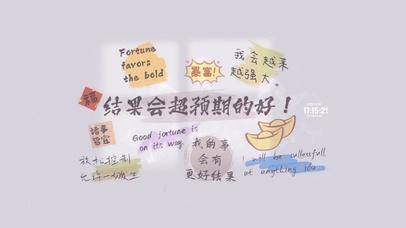 Fortune
favors
the bold
暴富!
我会越来
越强大。
福
结果会超预期的好！
17:15:21
诸事
皆宜
Good fortune is
on its way.
我的事
会有
更好结果
放下控制
允许一切发生
I will be cullessfull
at anything I do